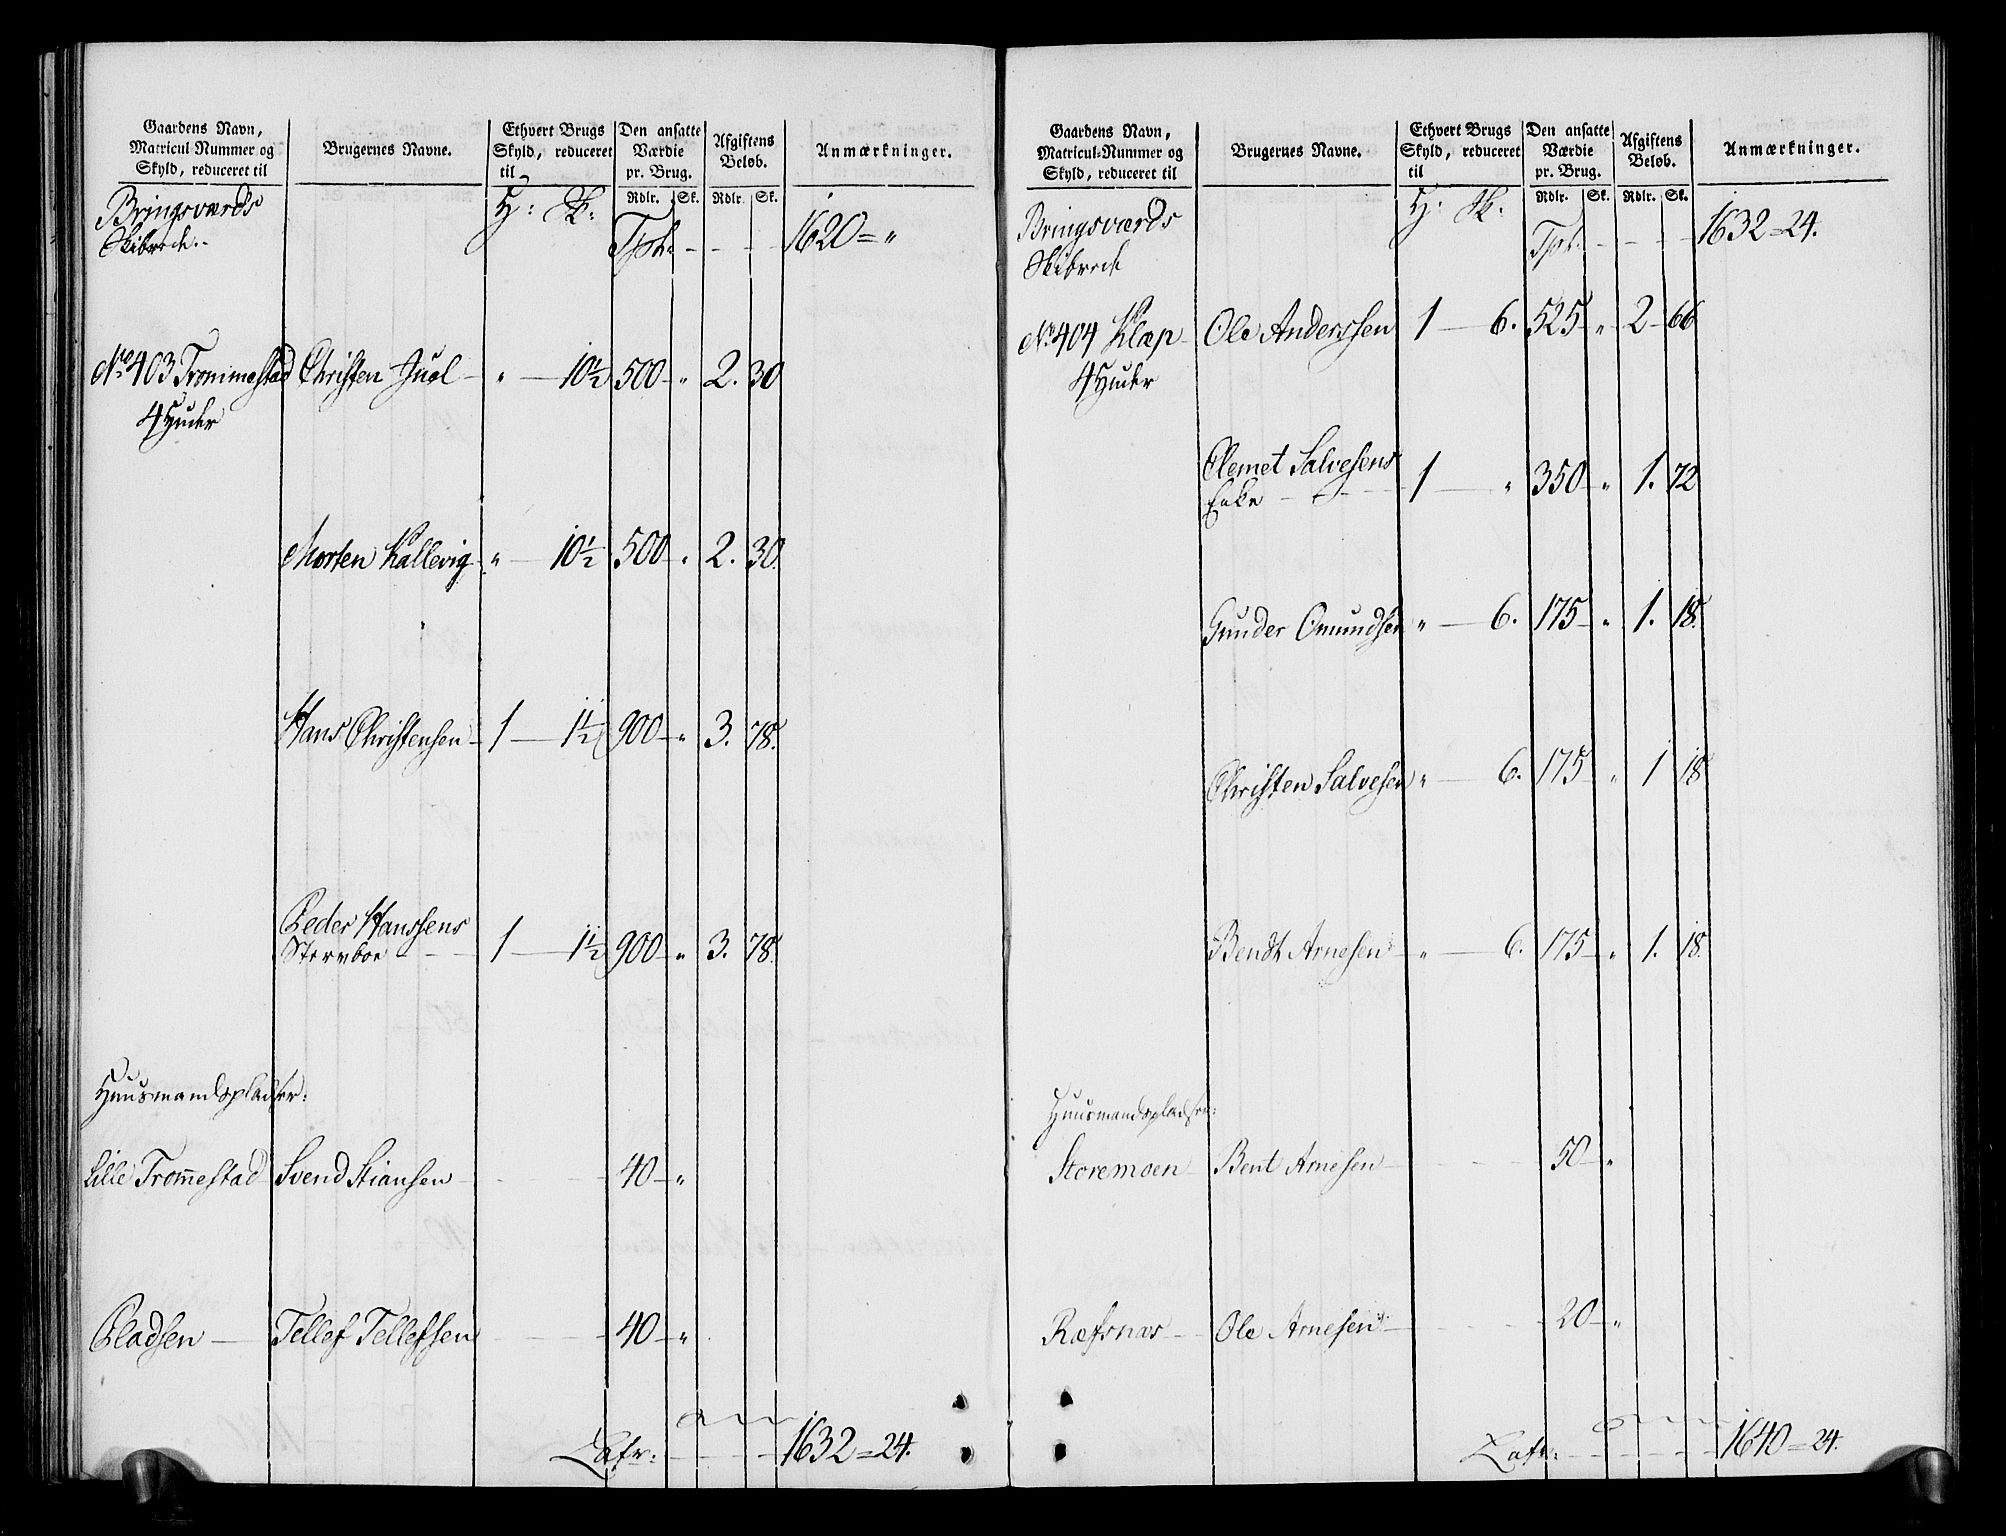 Gaardens Navn,
Matricul Nummer og
Skyld, reduceret til
Brugernes Navne.
Ethvert Brugs
Skyld, reduceret
til
Den ansatte
Værdie
pr. Brug.
Afgiftens
Beløb.
Anmærkninger.
Rdlr. Sk. Rdlr. Sk.
Bringsværds H: Sk:
Skibrede.- Tpt: - - - 1620 = "
No 403 Trommestad Christen Juel - " - 10½ 500 - " 2. 30
4 Huder
Morten Kallevig - " - 10½ 500 - " 2. 30.
Hans Christensen - 1 - 1½ 900 - " 3. 78.
Peder Hanssens
Stervboe - - 1 - 1½ 900 - " 3. 78.
Huusmandspladser:
Lille Trom̄estad Svend Stiansen - - - 40 - "
Pladsen - Tellef Tellefsen - - - 40 - "
Latr: - - - 1632 = 24.
Gaardens Navn,
Matricul-Nummer og
Skyld, reduceret til
Brugernes Navne.
Ethvert Brugs
Skyld, reduceret
til
Den ansatte
Værdie
pr. Brug.
Afgiftens
Beløb.
Anmærkninger.
Rdlr. Sk. Rdlr. Sk.
Bringsværds H: Sk:
Skibrede Tpt. - - - 1632 = 24.
No 404 Klæp - Ole Anderssen 1 - 6. 525 - " 2 - 66
4 Huder
Clemet Salvesens
Enke - - - 1 - " 350 - " 1. 72
Gunder Omundsen " - 6. 175 - " 1. 18.
Christen Salvesen " - 6. 175 - " 1 18
Bendt Arnesen - " - 6. 175 - " 1. 18.
Huusmandspladser:
Storemoen - Bent Arnesen - - - 50 - "
Ræfsnæs - Ole Arnesen - - - 20 - "
Latr: - - - 1640 = 24.